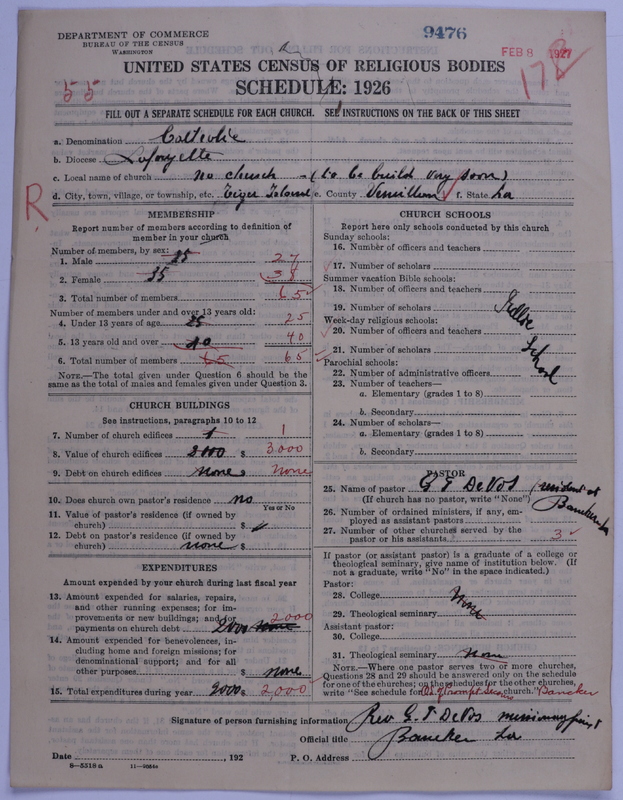 DEPARTMENT OF COMMERCE
BUREAU OF THE CENSUS
WASHINGTON
9476
FEB 8 1927
UNITED STATES CENSUS OF RELIGIOUS BODIES
SCHEDULE: 1926
55
FILL OUT A SEPARATE SCHEDULE FOR EACH CHURCH. SEE INSTRUCTIONS ON THE BACK OF THIS SHEET
a. Denomination Catholic
b. Diocese Lafayette
c. Local name of church no church - (to be build very soon)
d. City, town, village, or township, etc. Tiger Island e. County Vermillion f. State La
R
MEMBERSHIP
Report number of members according to definition of member in your church
Number of members, by sex:
1. Male
2. Female 35
3. Total number of members 65
Number of members under and over 13 years old:
4. Under 13 years of age 25 25
5. 13 years old and over 40 40
6. Total number of members 65 65
NOTE.—The total given under Question 6 should be the
same as the total of males and females given under Question 3.
CHURCH BUILDINGS
See instructions, paragraphs 10 to 12
7. Number of church edifices 1 1
8. Value of church edifices $ 3000
9. Debt on church edifices none $ none
10. Does church own pastor's residence no
Yes or No
11. Value of pastor's residence (if owned by
church) $
12. Debt on pastor's residence (if owned by
church) none $
EXPENDITURES
Amount expended by your church during last fiscal year
13. Amount expended for salaries, repairs,
and other running expenses; for im-
provements or new buildings; and for
payments on church debt 2000 none 2000
14. Amount expended for benevolences, in-
cluding home and foreign missions; for
denominational support; and for all
other purposes $ none
15. Total expenditures during year 2000 $ 2,000
CHURCH SCHOOLS
Report here only schools conducted by this church
Sunday schools:
16. Number of officers and teachers
17. Number of scholars
Summer vacation Bible schools:
18. Number of officers and teachers
19. Number of scholars
Week-day religious schools:
20. Number of officers and teachers
21. Number of scholars
Parochial schools:
22. Number of administrative officers
23. Number of teachers—
a. Elementary (grades 1 to 8)
b. Secondary
24. Number of scholars—
a. Elementary (grades 1 to 8)
b. Secondary
School
PASTOR
25. Name of pastor G F DeVos resident at
(If church has no pastor, write "None") Bancker La
26. Number of ordained ministers, if any, em-
ployed as assistant pastors
27. Number of other churches served by the
pastor or his assistants 3
If pastor (or assistant pastor) is a graduate of a college or
theological seminary, give name of institution below. (If
not a graduate, write "No" in the space indicated.)
Pastor:
28. College none
29. Theological seminary
Assistant pastor:
30. College
31. Theological seminary none
NOTE.—Where one pastor serves two or more churches,
Questions 28 and 29 should be answered only on the schedule
for one of the churches; on the schedules for the other churches,
write "See schedule for church." Bancker
Signature of person furnishing information Rev G F DeVos missionary priest
Official title Bancker La
Date , 192 P. O. Address
8—5518 a 11—9664a